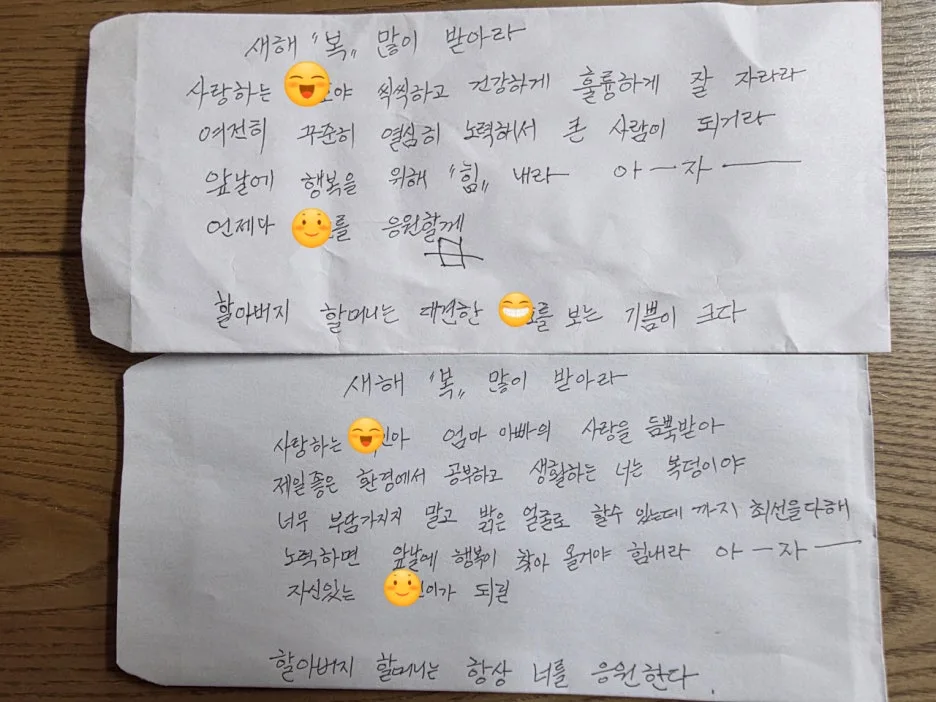 새해 "복" 많이 받아라
사랑하는 야 씩씩하고 건강하게 훌륭하게 잘 자라라
여전히 꾸준히 열심히 노력해서 큰 사람이 되거라
앞날에 행복을 위해 "힘" 내라 아ㅡ자ㅡ
언제다 를 응원할께
할아버지 할머니는 대견한 를 보는 기쁨이 크다
새해 "복" 많이 받아라
사랑하는 아 엄마 아빠의 사랑을 듬뿍받아
제일좋은 환경에서 공부하고 생활하는 너는 복덩이야
너무 부담가지지 말고 밝은 얼굴로 할수 있는데 까지 최선을다해
노력하면 앞날에 행복이 찾아 올거야 힘내라 아ㅡ자ㅡ
자신있는 이가 되린
할아버지 할머니는 항상 너를 응원한다.